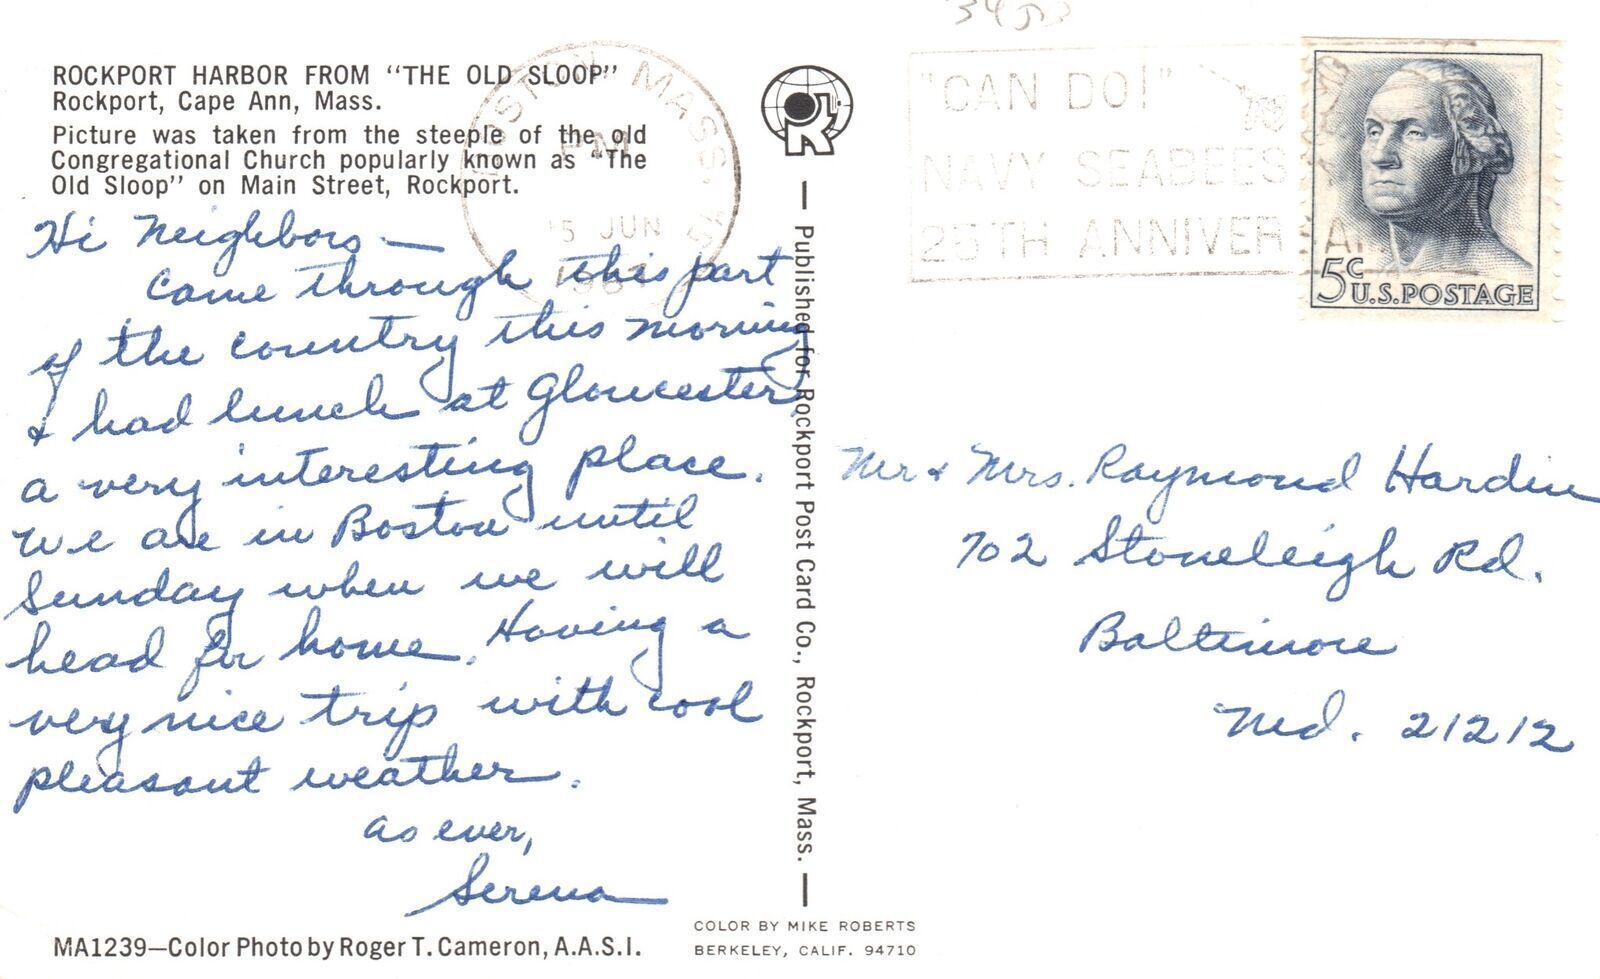 3453
ROCKPORT HARBOR FROM "THE OLD SLOOP"
Rockport, Cape Ann, Mass.
Picture was taken from the steeple of the old
Congregational Church popularly known as "The
Old Sloop" on Main Street, Rockport.
Hi Neighbors —
Came through this part
of the country this morning
& had lunch at Gloucester,
a very interesting place.
We are in Boston until
Sunday when we will
head for home. Having a
very nice trip with cool
pleasant weather.
as ever,
Serena
MA1239—Color Photo by Roger T. Cameron, A.A.S.I.
BOSTON MASS.
PM
15 JUN
196
R
— Published for Rockport Post Card Co., Rockport, Mass. —
COLOR BY MIKE ROBERTS
BERKELEY, CALIF. 94710
"CAN DO!"
NAVY SEABEES
25TH ANNIVER
5c U.S. POSTAGE
Mr & Mrs. Raymond Hardin
702 Stoneleigh Rd.
Baltimore
Md. 21212